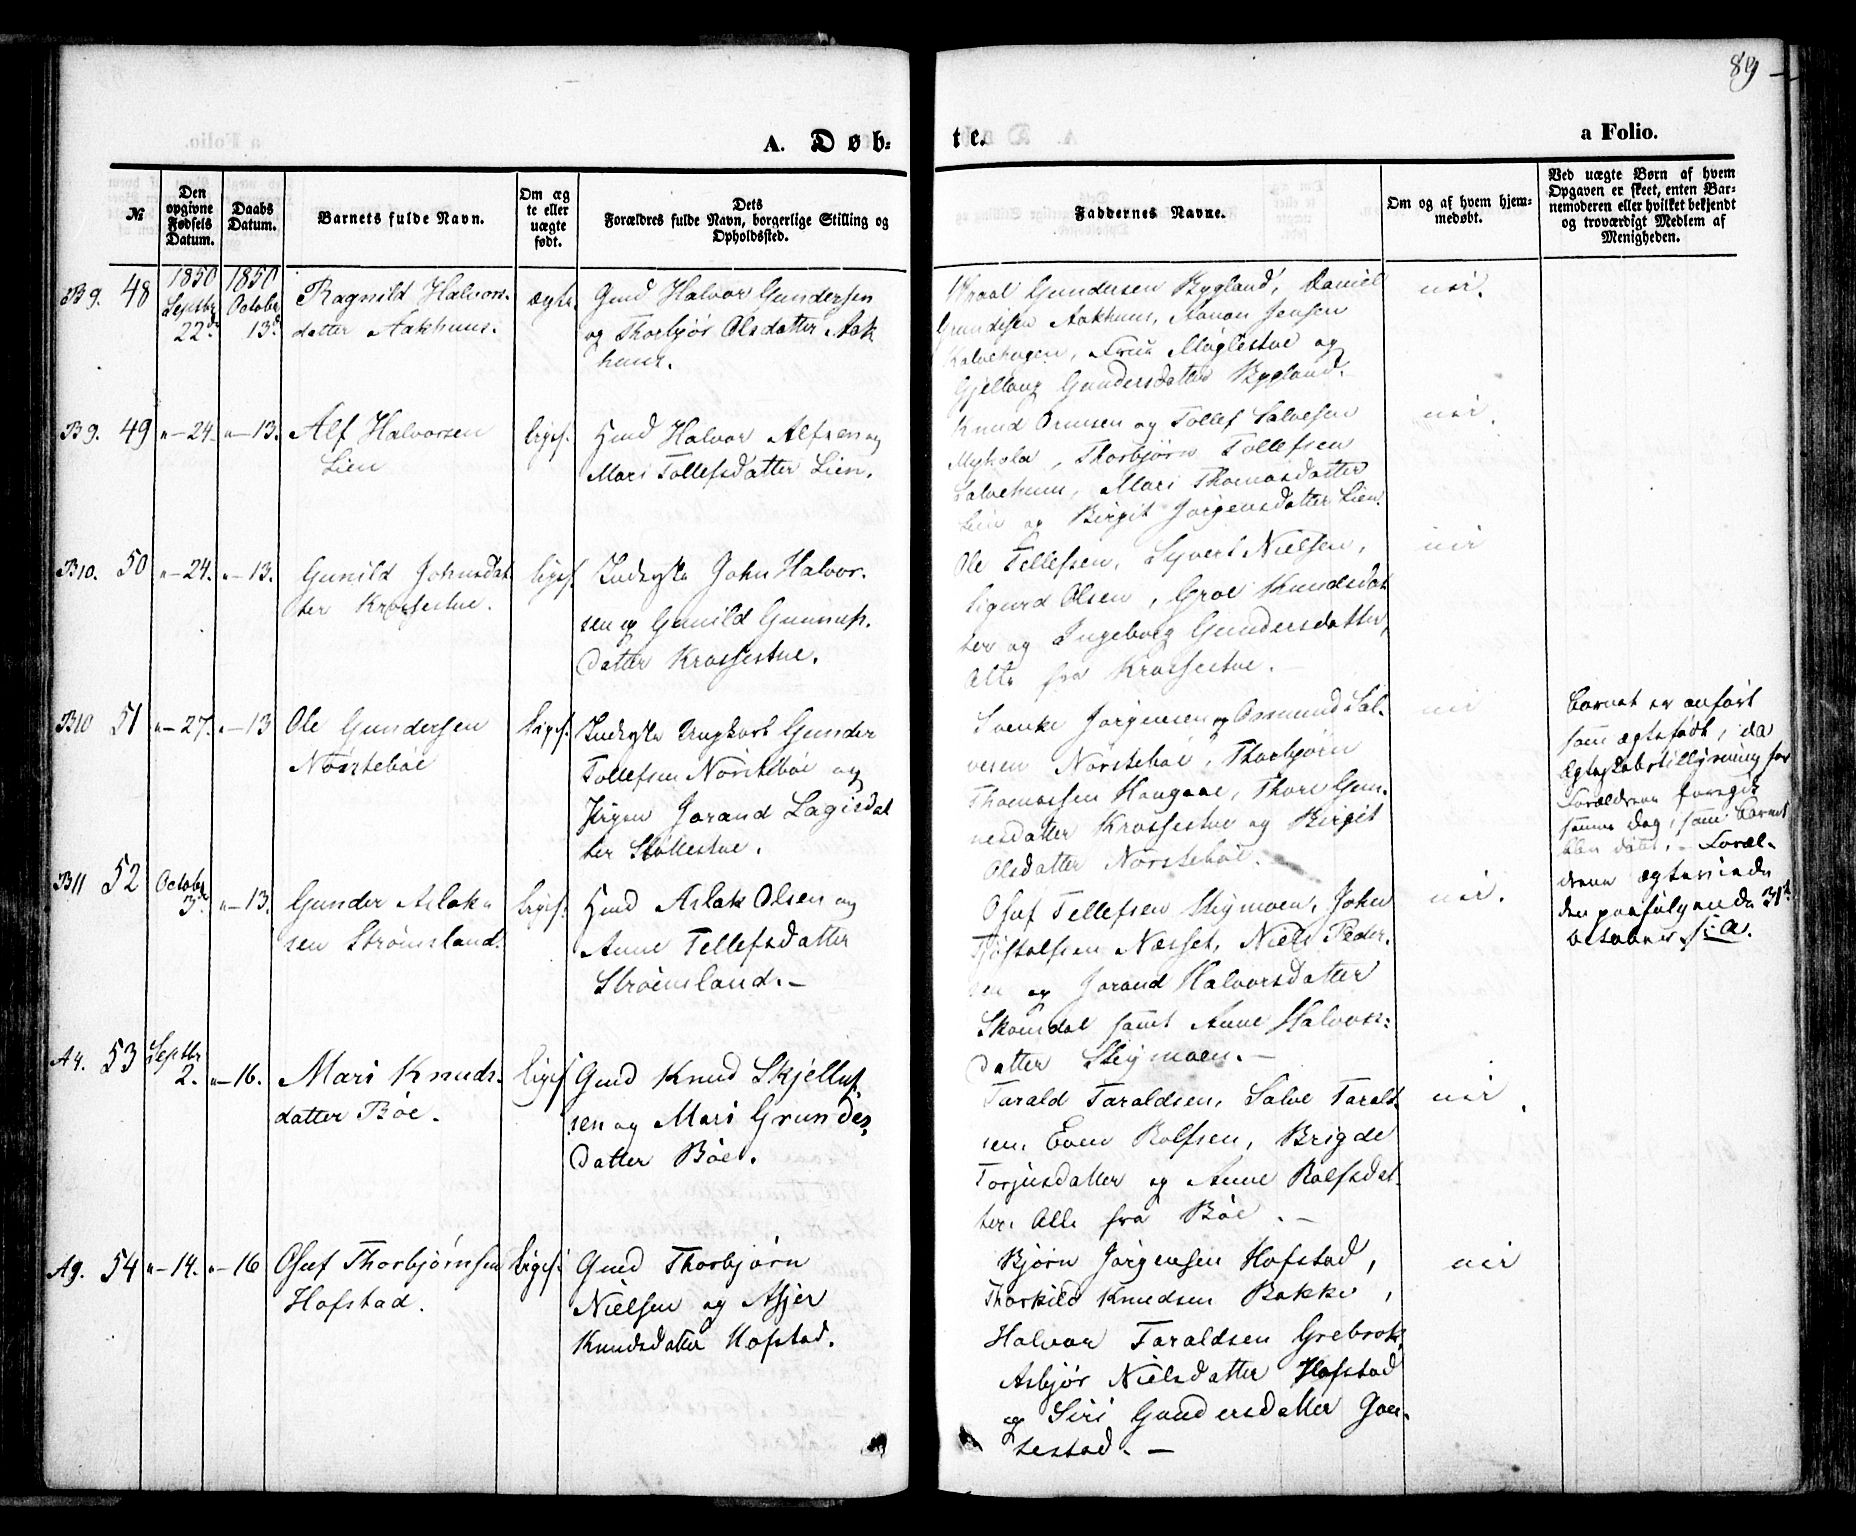 89
A. Døb=
te.
a Folio.
№
Den opgivne Fødsels Datum.
Daabs Datum.
Barnets fulde Navn.
Om ægte eller uægte født.
Dets
Forældres fulde Navn, borgerlige Stilling og
Opholdssted.
Faddernes Navne.
Om og af hvem hjem-
medøbt.
Ved uægte Børn af hvem
Opgaven er skeet, enten Bar-
nemoderen eller hvilket bekjendt
og troværdigt Medlem af
Menigheden.
B9. 48
1850 Septbr 22d
1850 October 13d
Ragnild Halvors-
datter Aakhuus.
ægte.
Gmd Halvor Gundersen
og Thorbjør Olsdatter Aak
huus.
Gundersen Bygland, Daniel
Gundersen Aakhuus, Jensen
og
Gundersdatter Bygland.
nei.
B9. 49 "-24. "-13.
Alf Halvorsen
Lien
ligef.
Hmd Halvor Alfsen og
Mari Tollefsdatter Lien.
Knud Ormsen og Tollef Salvesen
Thorbjørn Tollefsen
Mari Thomasdatter
Lien og Birgit Jørgensdatter Lien.
nei.
B10. 50 "-24. "-13.
Gunild Johnsdat
ter Krossestue.
ligef.
Inderste John Halvor-
sen og Gunild Gunnufs-
datter Krossestue.
Ole Tellefsen, Syvert Nielsen,
Sigurd Olsen, Groe Knudsdat
ter og Ingeborg Gundersdatter,
Alle fra Krossestue.
nei
B10 51 "-27. "-13
Ole Gundersen
Nørstebøe
ligef.
Inderste Ungkarl Gunder
Tollefsen Nørstebøe og
Pigen Jorand Lagisdat
ter Støllestue.
Svenke Jørgensen og Osmund Sal-
vesen Nørstebøe, Thorbjørn
Thomassen Haugaae, Thore Gun-
nesdatter Krossestue og Birgit
Olsdatter Nørstebøe.
nei
Barnet er anført
som ægtefødt, da
Ægteskabstillysning for
Forældrene foregik
samme Dag, som Barnet
blev døbt. - Foræl-
drene ægteviede
den paafølgende 31te
October s. A.
B11 52 October 3d "-13.
Gunder Aslak-
sen Strømsland.
ligef.
Hmd Aslak Olsen og
Anne Tellefsdatter
Strømsland. -
Oluf Tellefsen Steymoen, John
Tjøstolfsen Næsset, Niels Peder-
sen og Jorand Halvorsdatter
Skomedal samt Anne Halvors-
datter Steymoen. -
nei.
A4. 53 Septbr 2. "-16.
Mari Knuds-
datter Bøe.
ligef
Gmd Knud Skjelluf
sen og Mari Grundes-
datter Bøe.
Tarald Taraldsen, Salve Tarald-
sen, Even Rolfsen, Brigde
Torjusdatter og Anne Rolfsdat-
ter, Alle fra Bøe. -
nei.
A9. 54 "-14. "-16
Oluf Thorbjørnsen
Hofstad.
ligef.
Gmd Thorbjørn
Nielsen og Asjer
Knudsdatter Hofstad.
Bjørn Jørgensen Hofstad,
Thorkild Knudsen Bakke,
Halvor Taraldsen Grebrok,
Asbjør Nielsdatter Hofstad
og Siri Gundersdatter
nei